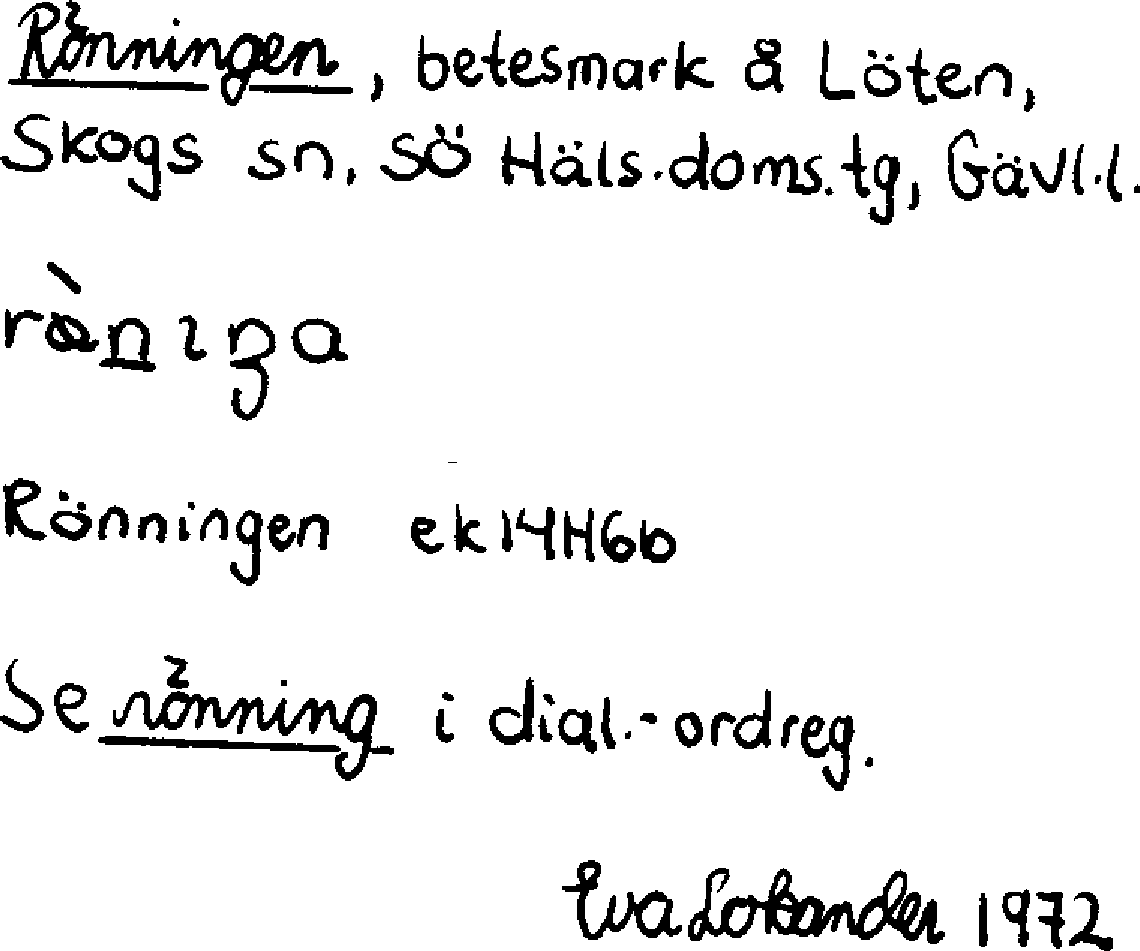 Rönningen, betesmark å Löten,
Skogs sn, SÖ Häls.doms.tg, Gävl.l.
Rönningen ek 14H6b
Se rönning i dial.-ordreg.
Eva 1972